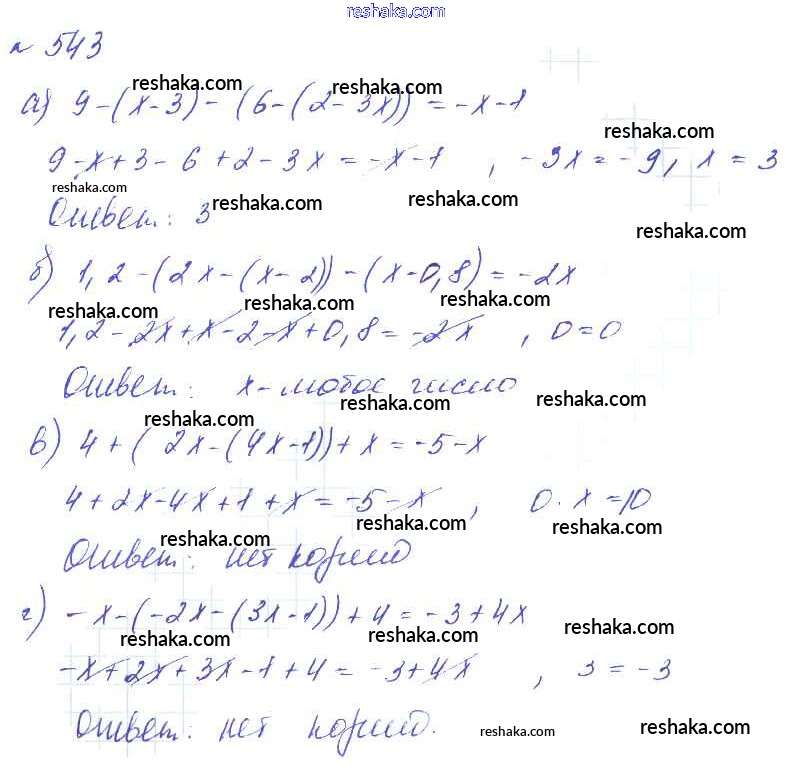 reshaka.com
№ 543
reshaka.com reshaka.com
а) 9-(x-3)-(6-(2-3x)) = -x-1
reshaka.com
9-x+3-6+2-3x = -x-1 , -3x = -9, x = 3
reshaka.com reshaka.com reshaka.com
Ответ: 3
reshaka.com
б) 1,2-(2x-(x-2))-(x-0,8) = -2x
reshaka.com reshaka.com reshaka.com
1,2-2x+x-2-x+0,8 = -2x , 0=0
Ответ: x-любое число
reshaka.com reshaka.com reshaka.com
в) 4+(2x-(4x-1))+x = -5-x
4+2x-4x+1+x = -5-x , 0·x = 10
reshaka.com reshaka.com reshaka.com
Ответ: нет корней
г) -x-(-2x-(3x-1))+4 = -3+4x
reshaka.com reshaka.com reshaka.com
-x+2x+3x-1+4 = -3+4x , 3 = -3
Ответ: нет корней.
reshaka.com reshaka.com